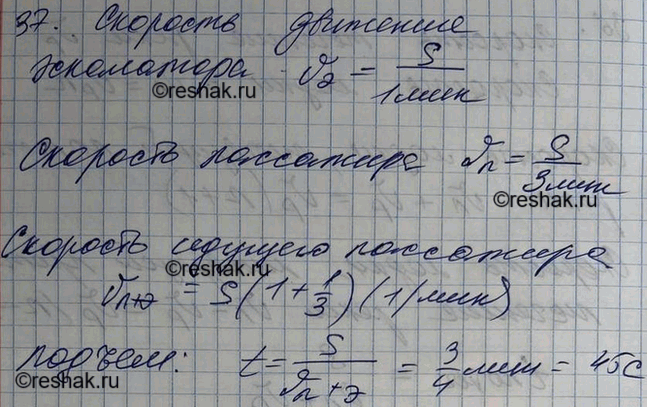 37. Скорость движение
эскалатора υэ = S / 1 мин
©reshak.ru ©reshak.ru
Скорость пассажира υп = S / 3 мин
©reshak.ru
Скорость идущего пассажира
©reshak.ru
υп+э = S (1 + 1/3) (1/мин)
подъем: t = S / υп+э = 3/4 мин = 45 с
©reshak.ru ©reshak.ru